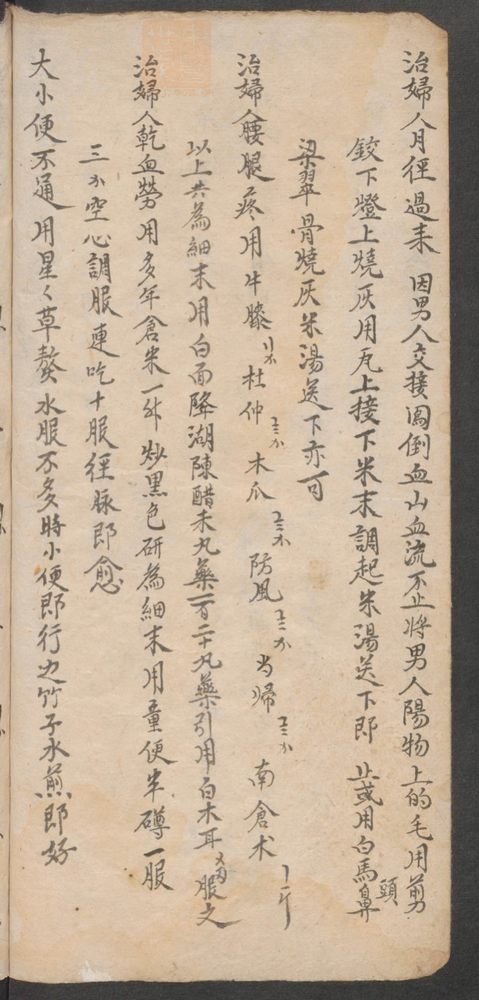 治婦人月徑過來因男人交接閣倒血山血流不止將男人陽物上的毛用剪
鉸下燈上燒灰用瓦上接下米末調起米湯送下即止或用白馬鼻頭
梁翠骨燒灰米湯送下亦可
治婦人腰腿疼用牛膝 杜仲 木瓜 防風 当歸 南倉术
以上共為細末用白面降湖陳醋未丸藥一百二十丸藥引用白木耳 服之
治婦人乾血勞用多年倉米一升炒黑色研為細末用童便半磚一服
三 空心調服連吃十服徑脉即愈
大小便不通用星々草熬水服不多時小便即行也竹子水煎即好